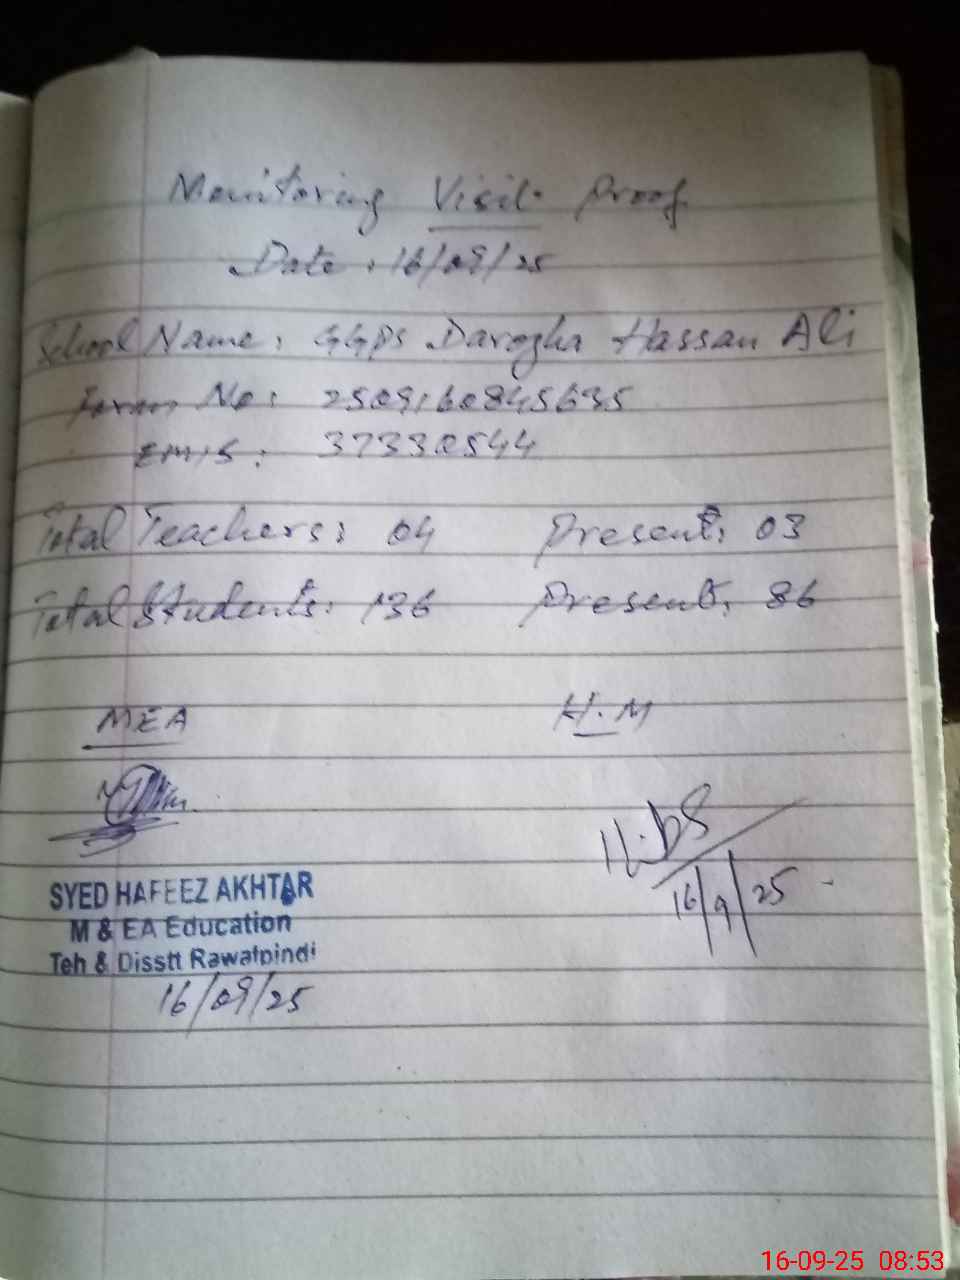 Monitoring Visit Proof
Date: 16/09/25
School Name: GGPS Darogha Hassan Ali
Form No: 2509160845635
EMIS: 37330544
Total Teachers: 04 Present: 03
Total Students: 136 Present: 86
MEA H.M
16/9/25
SYED HAFEEZ AKHTAR
M & EA Education
Teh & Disstt Rawalpindi
16/09/25
16-09-25 08:53